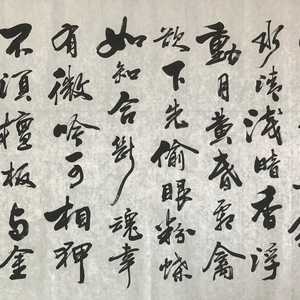 水清淺暗香浮
動月黄昏霜禽
欲下先偷眼粉蝶
如知合斷魂幸
有微吟可相狎
不須檀板与金